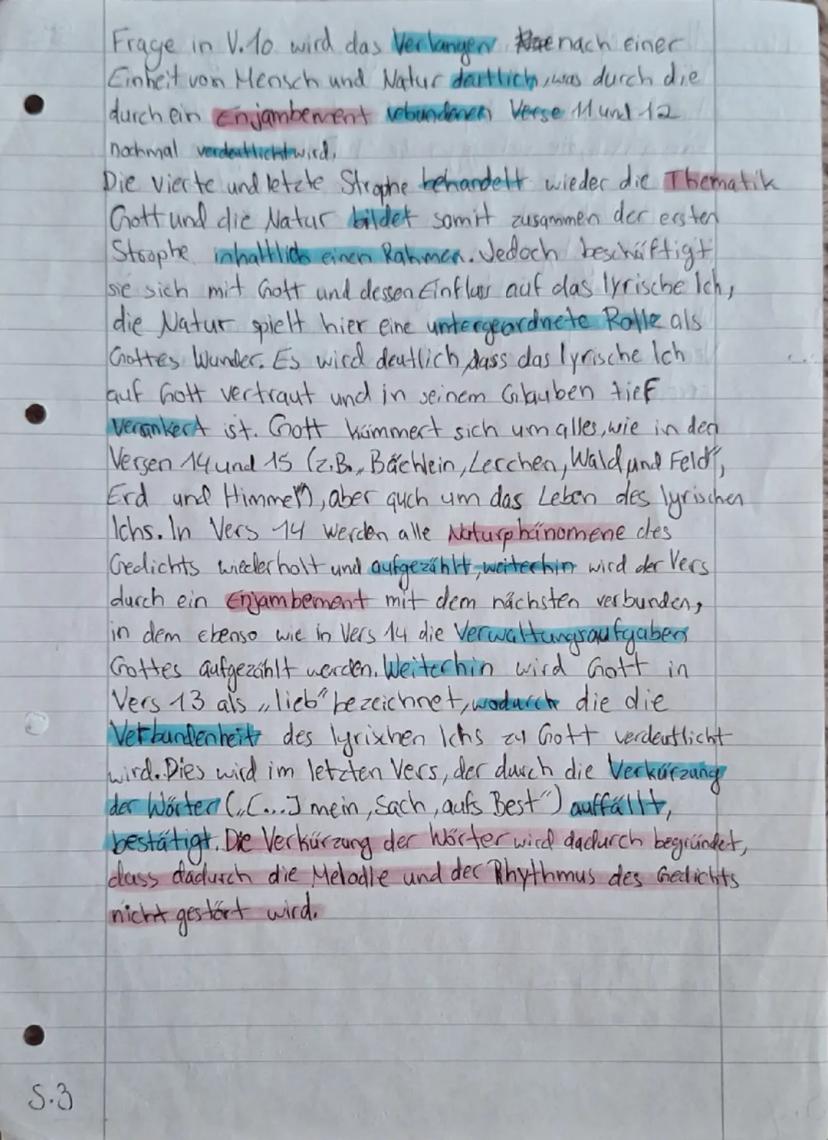 Frage in V.10 wird das Verlangen nach einer
Einheit von Mensch und Natur deutlich, was durch die
durch ein Enjambement verbundenen Verse 11 und 12
nochmal verdeutlicht wird.
Die vierte und letzte Strophe behandelt wieder die Thematik
Gott und die Natur bildet somit zusammen der ersten
Strophe inhaltlich einen Rahmen. Jedoch beschäftigt
sie sich mit Gott und dessen Einfluss auf das lyrische Ich,
die Natur spielt hier eine untergeordnete Rolle als
Gottes Wunder. Es wird deutlich, dass das lyrische Ich
auf Gott vertraut und in seinem Glauben tief
verankert ist. Gott kümmert sich um alles, wie in den
Versen 14 und 15 (z.B. „Bächlein, Lerchen, Wald und Feld",
Erd und Himmel"), aber auch um das Leben des lyrischen
Ichs. In Vers 14 werden alle Naturphänomene des
Gedichts wiederholt und aufgezählt, weiterhin wird der Vers
durch ein Enjambement mit dem nächsten verbunden,
in dem ebenso wie in Vers 14 die Verwaltungsaufgaben
Gottes aufgezählt werden. Weiterhin wird Gott in
Vers 13 als „lieb" bezeichnet, wodurch die die
Verbundenheit des lyrischen Ichs zu Gott verdeutlicht
wird. Dies wird im letzten Vers, der durch die Verkürzung
der Wörter („[...] mein, Sach, aufs Best") auffällt,
bestätigt. Die Verkürzung der Wörter wird dadurch begründet,
dass dadurch die Melodie und der Rhythmus des Gedichts
nicht gestört wird.
S.3